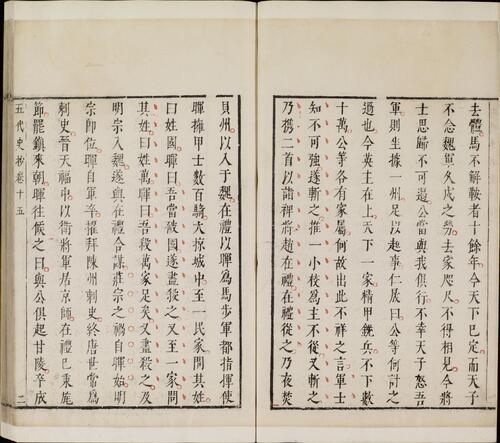 去體馬不解鞍者十餘年今天下已定而天子
不念魏軍久戍之勞去家咫尺不得相見今將
士思歸不可遏公當與我俱行不幸天子怒吾
軍則坐據一州足以起事仁晸曰公等何計之
過也今英主在上天下一家精甲銳兵不下數
十萬公等各有家屬何故出此不祥之言軍士
知不可強遂斬之推一小校為主不從又斬之
乃攜二首以詣裨將趙在禮在禮從之乃夜焚
貝州以入于魏在禮以暉為馬步軍都指揮使
暉擁甲士數百騎大掠城中至一民家問其姓
曰姓國暉曰吾當破國遂盡殺之又至一家問
其姓曰姓萬暉曰吾殺萬家足矣又盡殺之及
明宗入魏遂與在禮合謀莊宗之禍自暉始明
宗即位暉自軍卒擢拜陳州刺史終唐世常為
刺史晉天福中以衛將軍居京師在禮已秉旄
節罷鎮來朝暉往候之曰與公俱起甘陵卒成
五代史抄卷十五
二